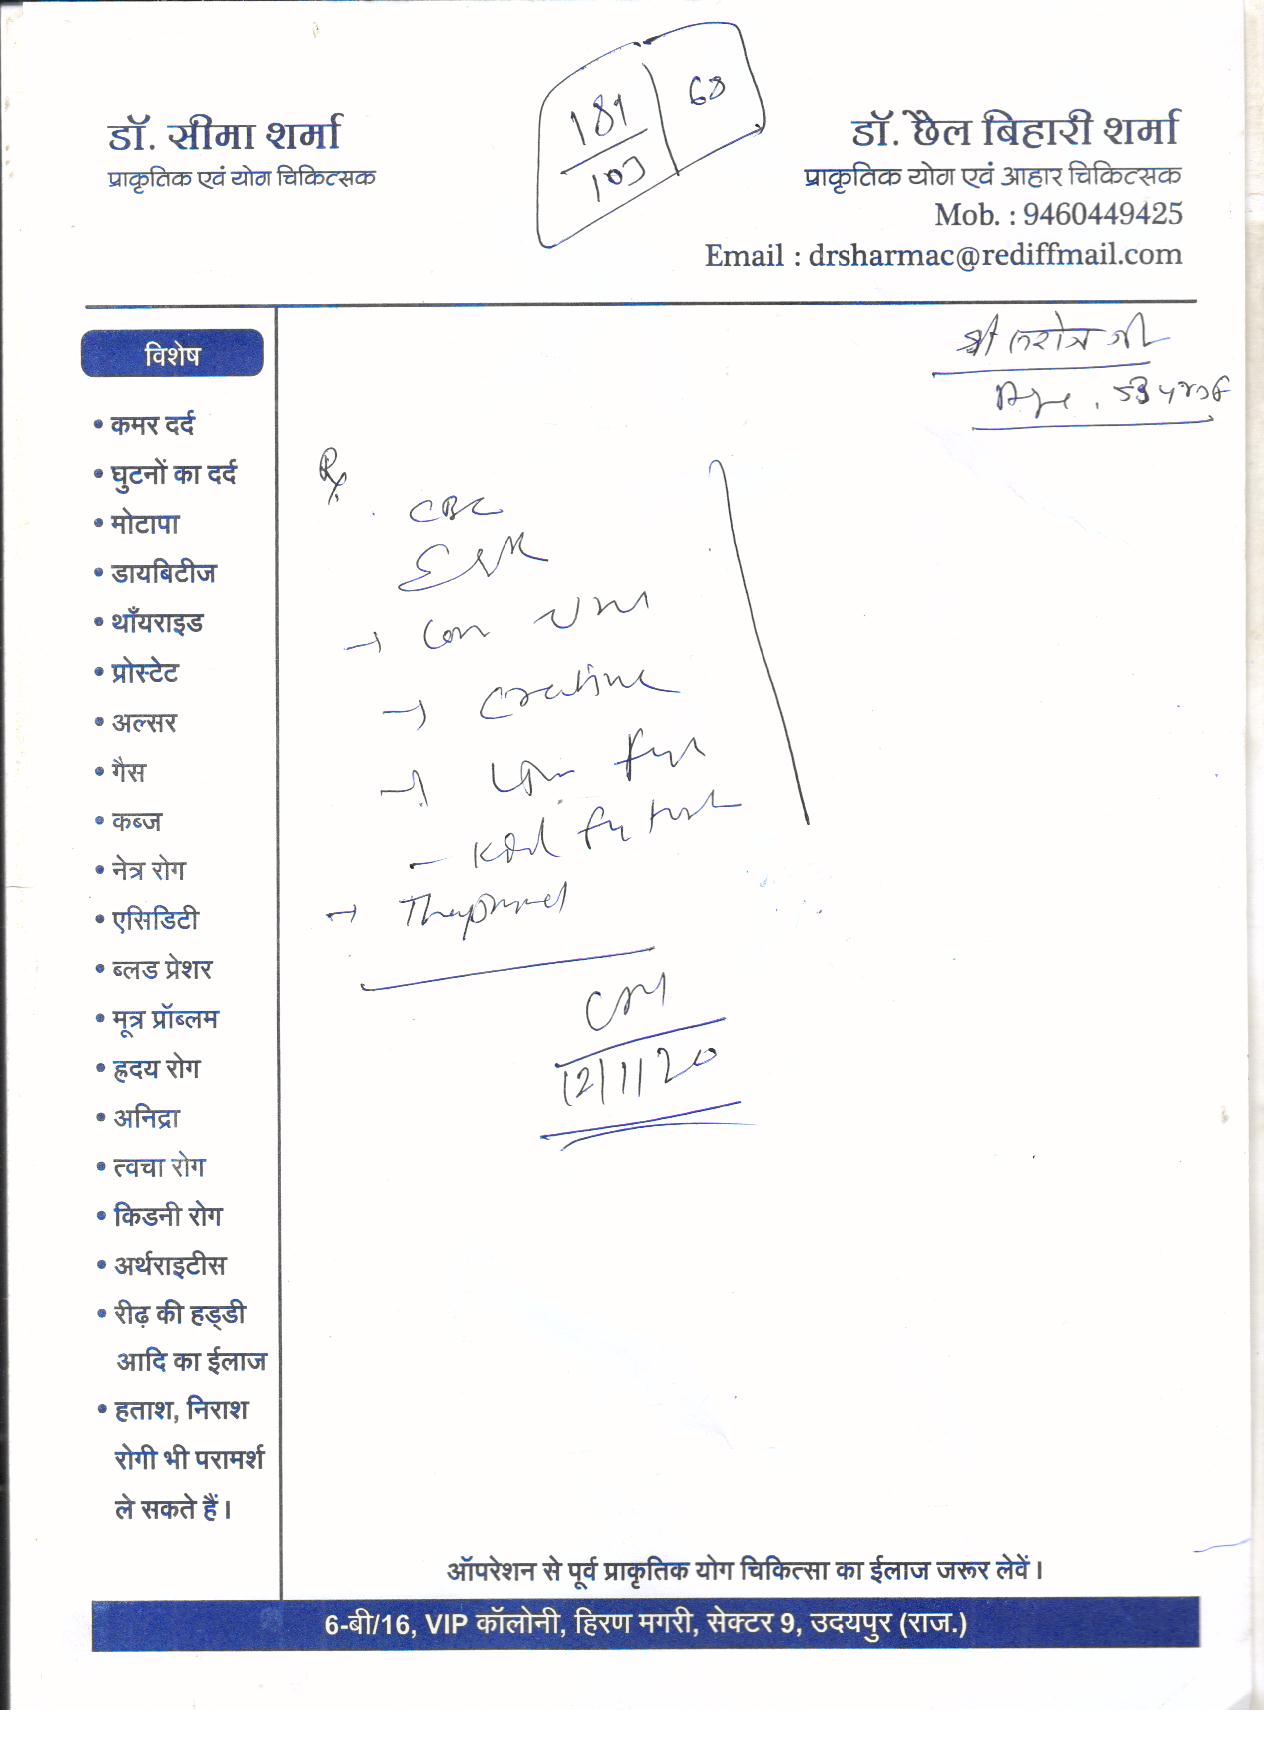 181
103
68
डॉ. सीमा शर्मा
प्राकृतिक एवं योग चिकित्सक
डॉ. छैल बिहारी शर्मा
प्राकृतिक योग एवं आहार चिकित्सक
Mob. : 9460449425
Email : drsharmac@rediffmail.com
विशेष
• कमर दर्द
• घुटनों का दर्द
• मोटापा
• डायबिटीज
• थाँयराइड
• प्रोस्टेट
• अल्सर
• गैस
• कब्ज
• नेत्र रोग
• एसिडिटी
• ब्लड प्रेशर
• मूत्र प्रॉब्लम
• ह्रदय रोग
• अनिद्रा
• त्वचा रोग
• किडनी रोग
• अर्थराइटीस
• रीढ़ की हड्डी
आदि का ईलाज
• हताश, निराश
रोगी भी परामर्श
ले सकते हैं।
श्री
Age. 53
Rx
CBC
ESR
→
→ Creatine
→
-
→
12/1/20
ऑपरेशन से पूर्व प्राकृतिक योग चिकित्सा का ईलाज जरूर लेवें।
6-बी/16, VIP कॉलोनी, हिरण मगरी, सेक्टर 9, उदयपुर (राज.)